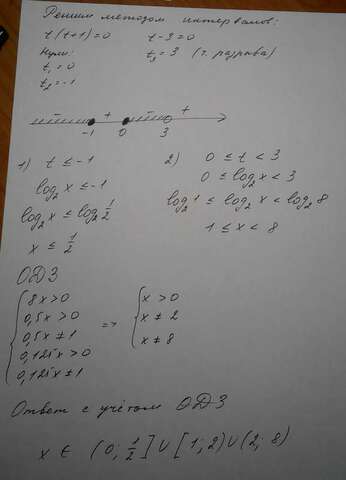 Решим методом интервалов:
t(t+1)=0 t-3=0
Нули: t₃=3 (т. разрыва)
t₁=0
t₂=-1
- + - +
-1 0 3
1) t ≤ -1 2) 0 ≤ t < 3
log₂x ≤ -1 0 ≤ log₂x < 3
log₂x ≤ log₂ 1/2 log₂1 ≤ log₂x < log₂8
x ≤ 1/2 1 ≤ x < 8
ОДЗ
{ 8x>0 { x > 0
0,5x>0 => x ≠ 2
0,5x ≠ 1 x ≠ 8
0,125x>0
0,125x≠1
Ответ с учётом ОДЗ
x ∈ (0; 1/2] ∪ [1; 2) ∪ (2; 8)